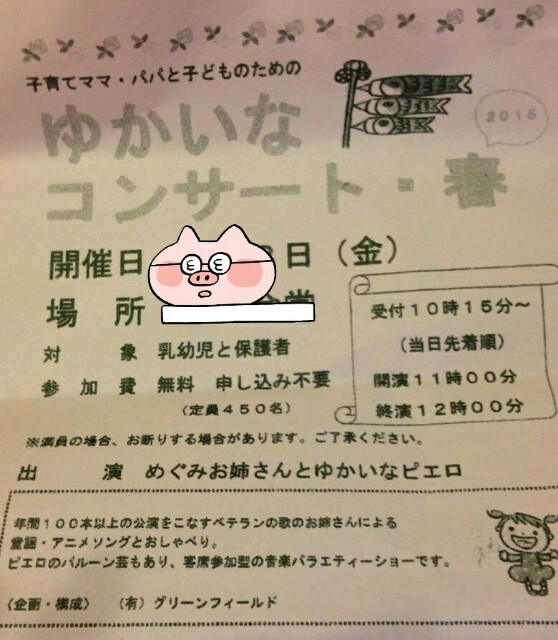 子育てママ・パパと子どものための
ゆかいな
2016
コンサート・春
開催日 日（金）
場 所
対 象 乳幼児と保護者
参 加 費 無料 申し込み不要
（定員４５０名）
受付１０時１５分～
（当日先着順）
開演１１時００分
終演１２時００分
※満員の場合、お断りする場合があります。ご了承ください。
出 演 めぐみお姉さんとゆかいなピエロ
年間１００本以上の公演をこなすベテランの歌のお姉さんによる
童謡・アニメソングとおしゃべり。
ピエロのバルーン芸もあり、客席参加型の音楽バラエティーショーです。
〈企画・構成〉 （有）グリーンフィールド